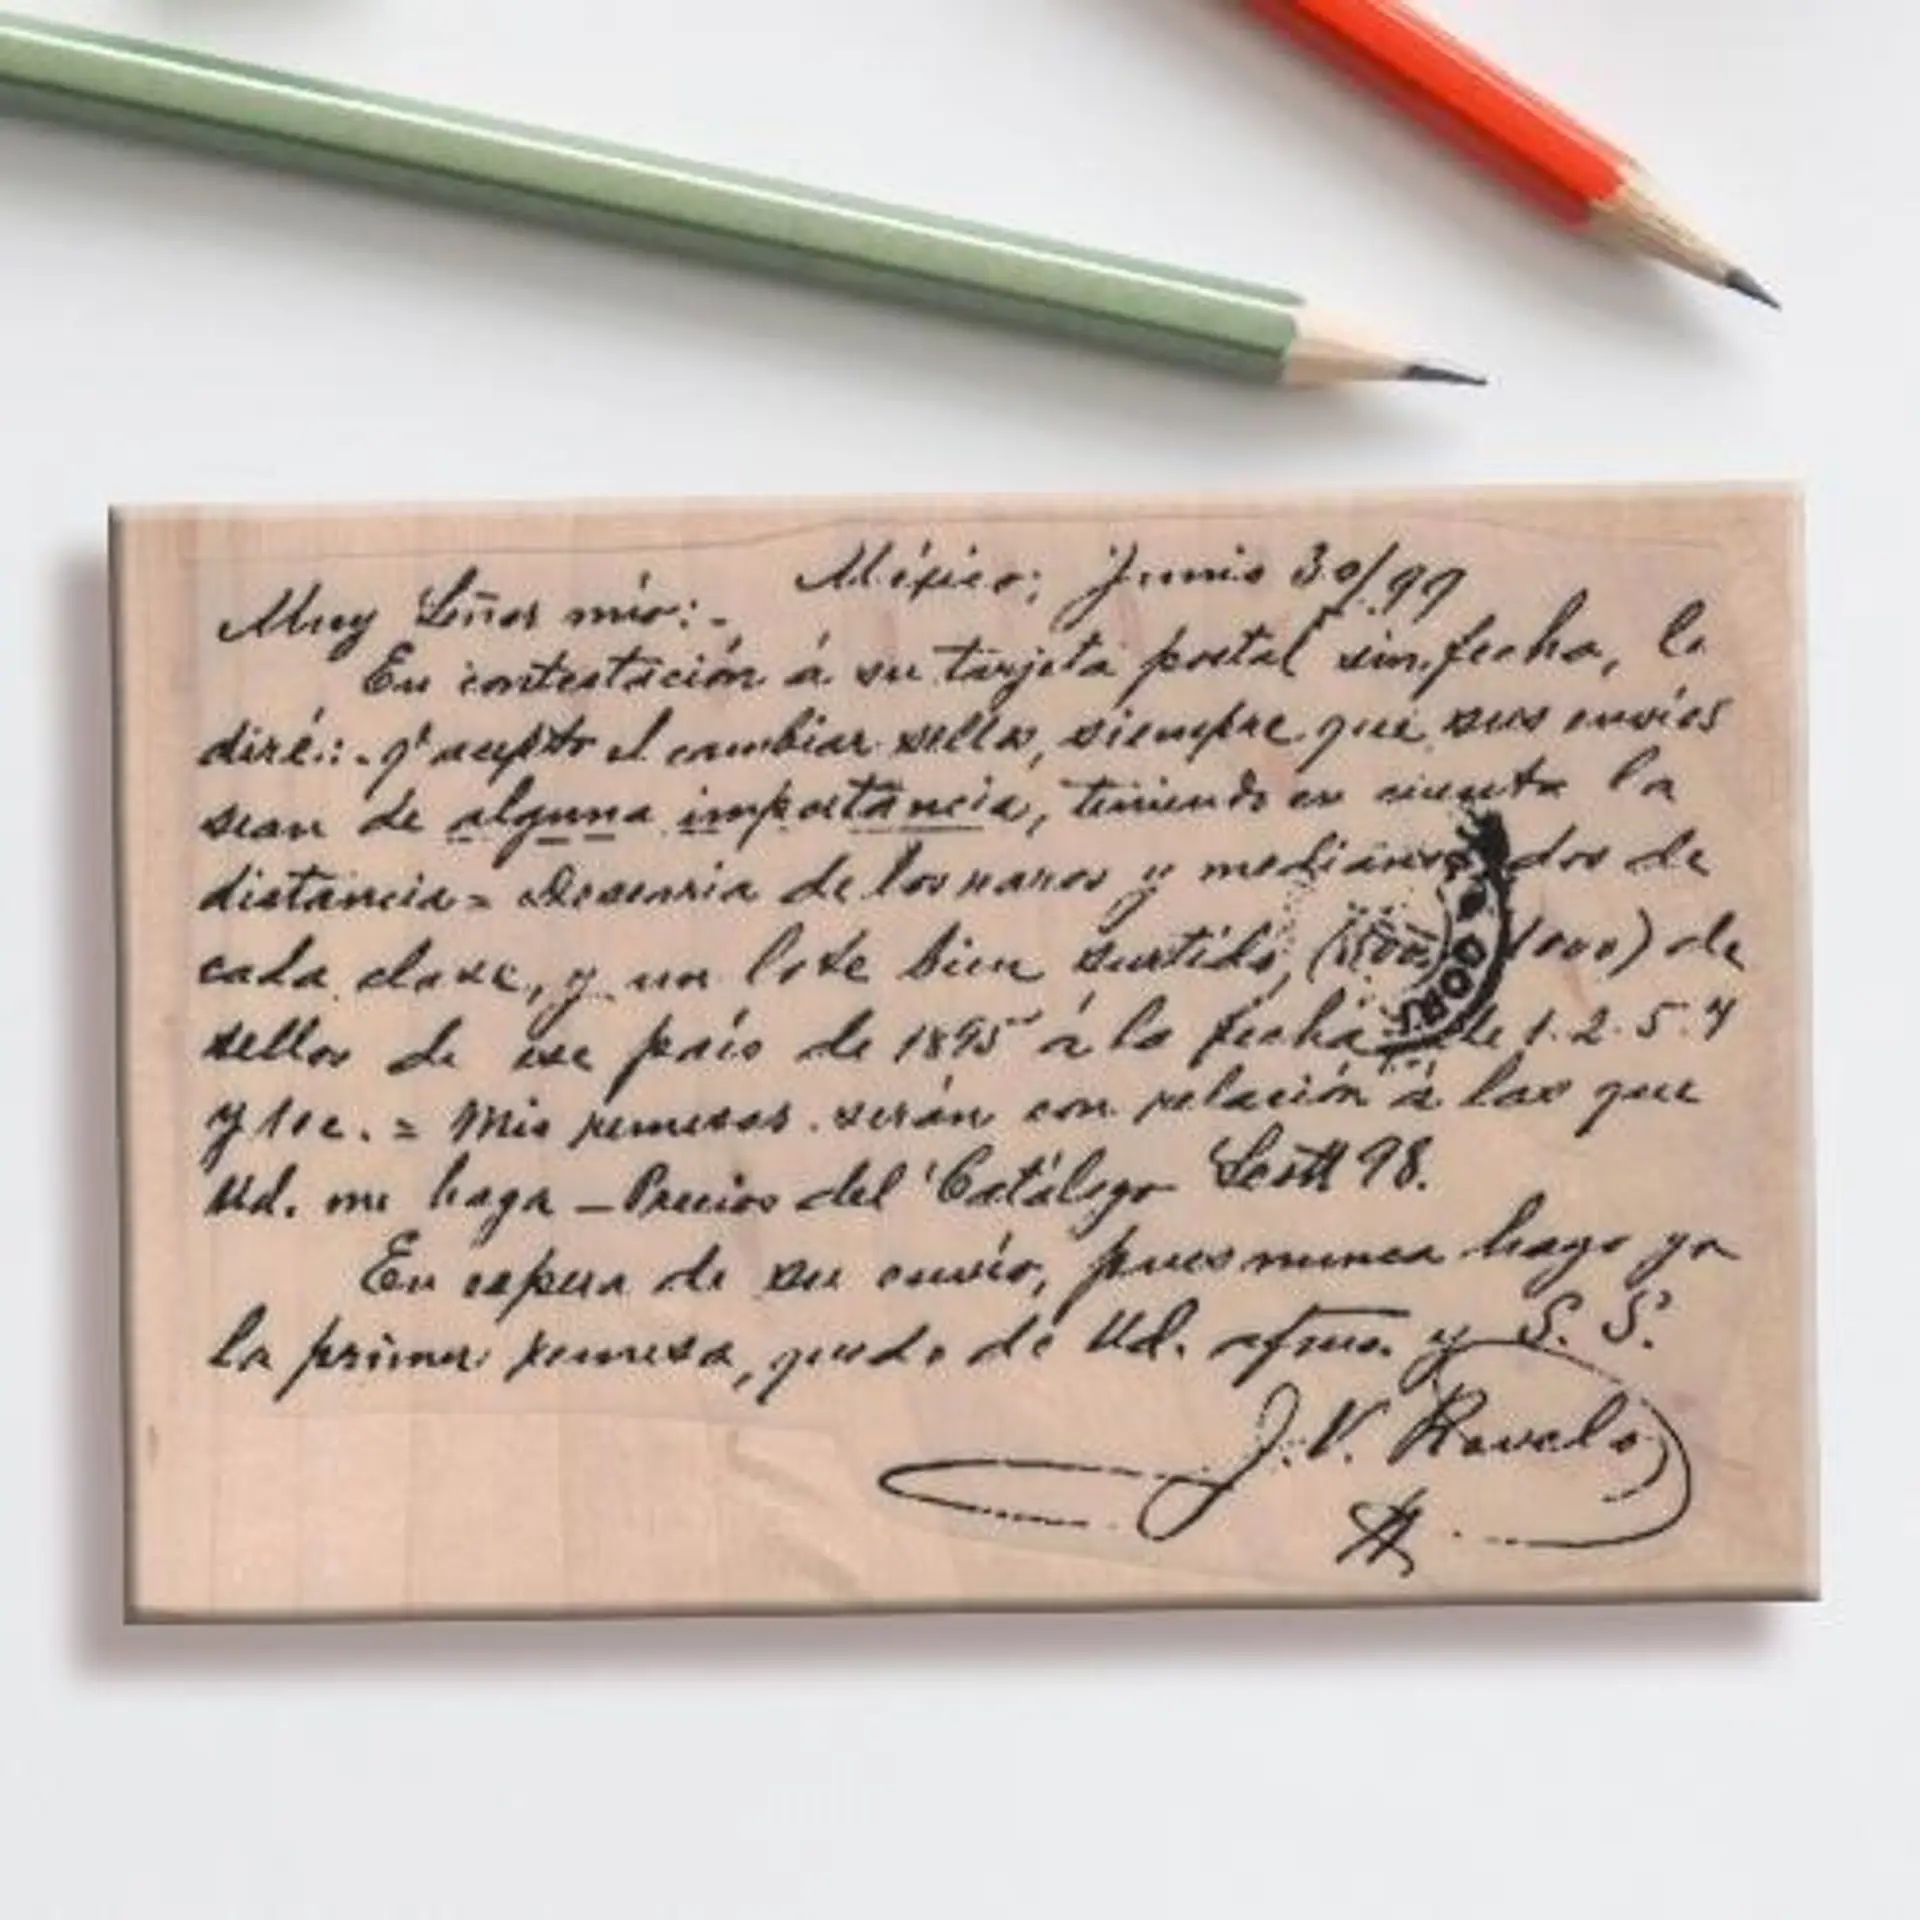 México; Junio 30/99
Muy Señor mío:-
En contestación á su tarjeta postal sin fecha, le
diré:- q' acepto el cambiar sellos, siempre que sus envíos
sean de alguna importancia, teniendo en cuenta la
distancia = Desearia de los raros y medianos dos de
cada clase, y un lote bien surtido, (500 1000) de
sellos de ese país de 1895 á la fecha de 1. 2. 5. 4
y 10c. = Mis remesas serán con relación á las que
Ud. me haga - Precios del Catálogo Scott 98.
En espera de su envío, pues nunca hago yo
la primer remesa, quedo de Ud. afmo. y S. S.
J. V. Ravelo